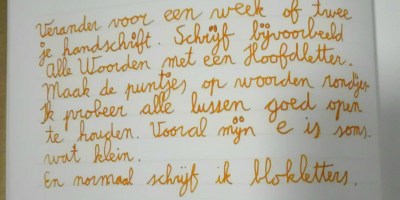 Verander voor een week of twee
je handschrift. Schrijf bijvoorbeeld
Alle Woorden met een Hoofdletter.
Maak de puntjes op woorden rondjes.
Ik probeer alle lussen goed open
te houden. Vooral mijn e is soms
wat klein.
En normaal schrijf ik blokletters.